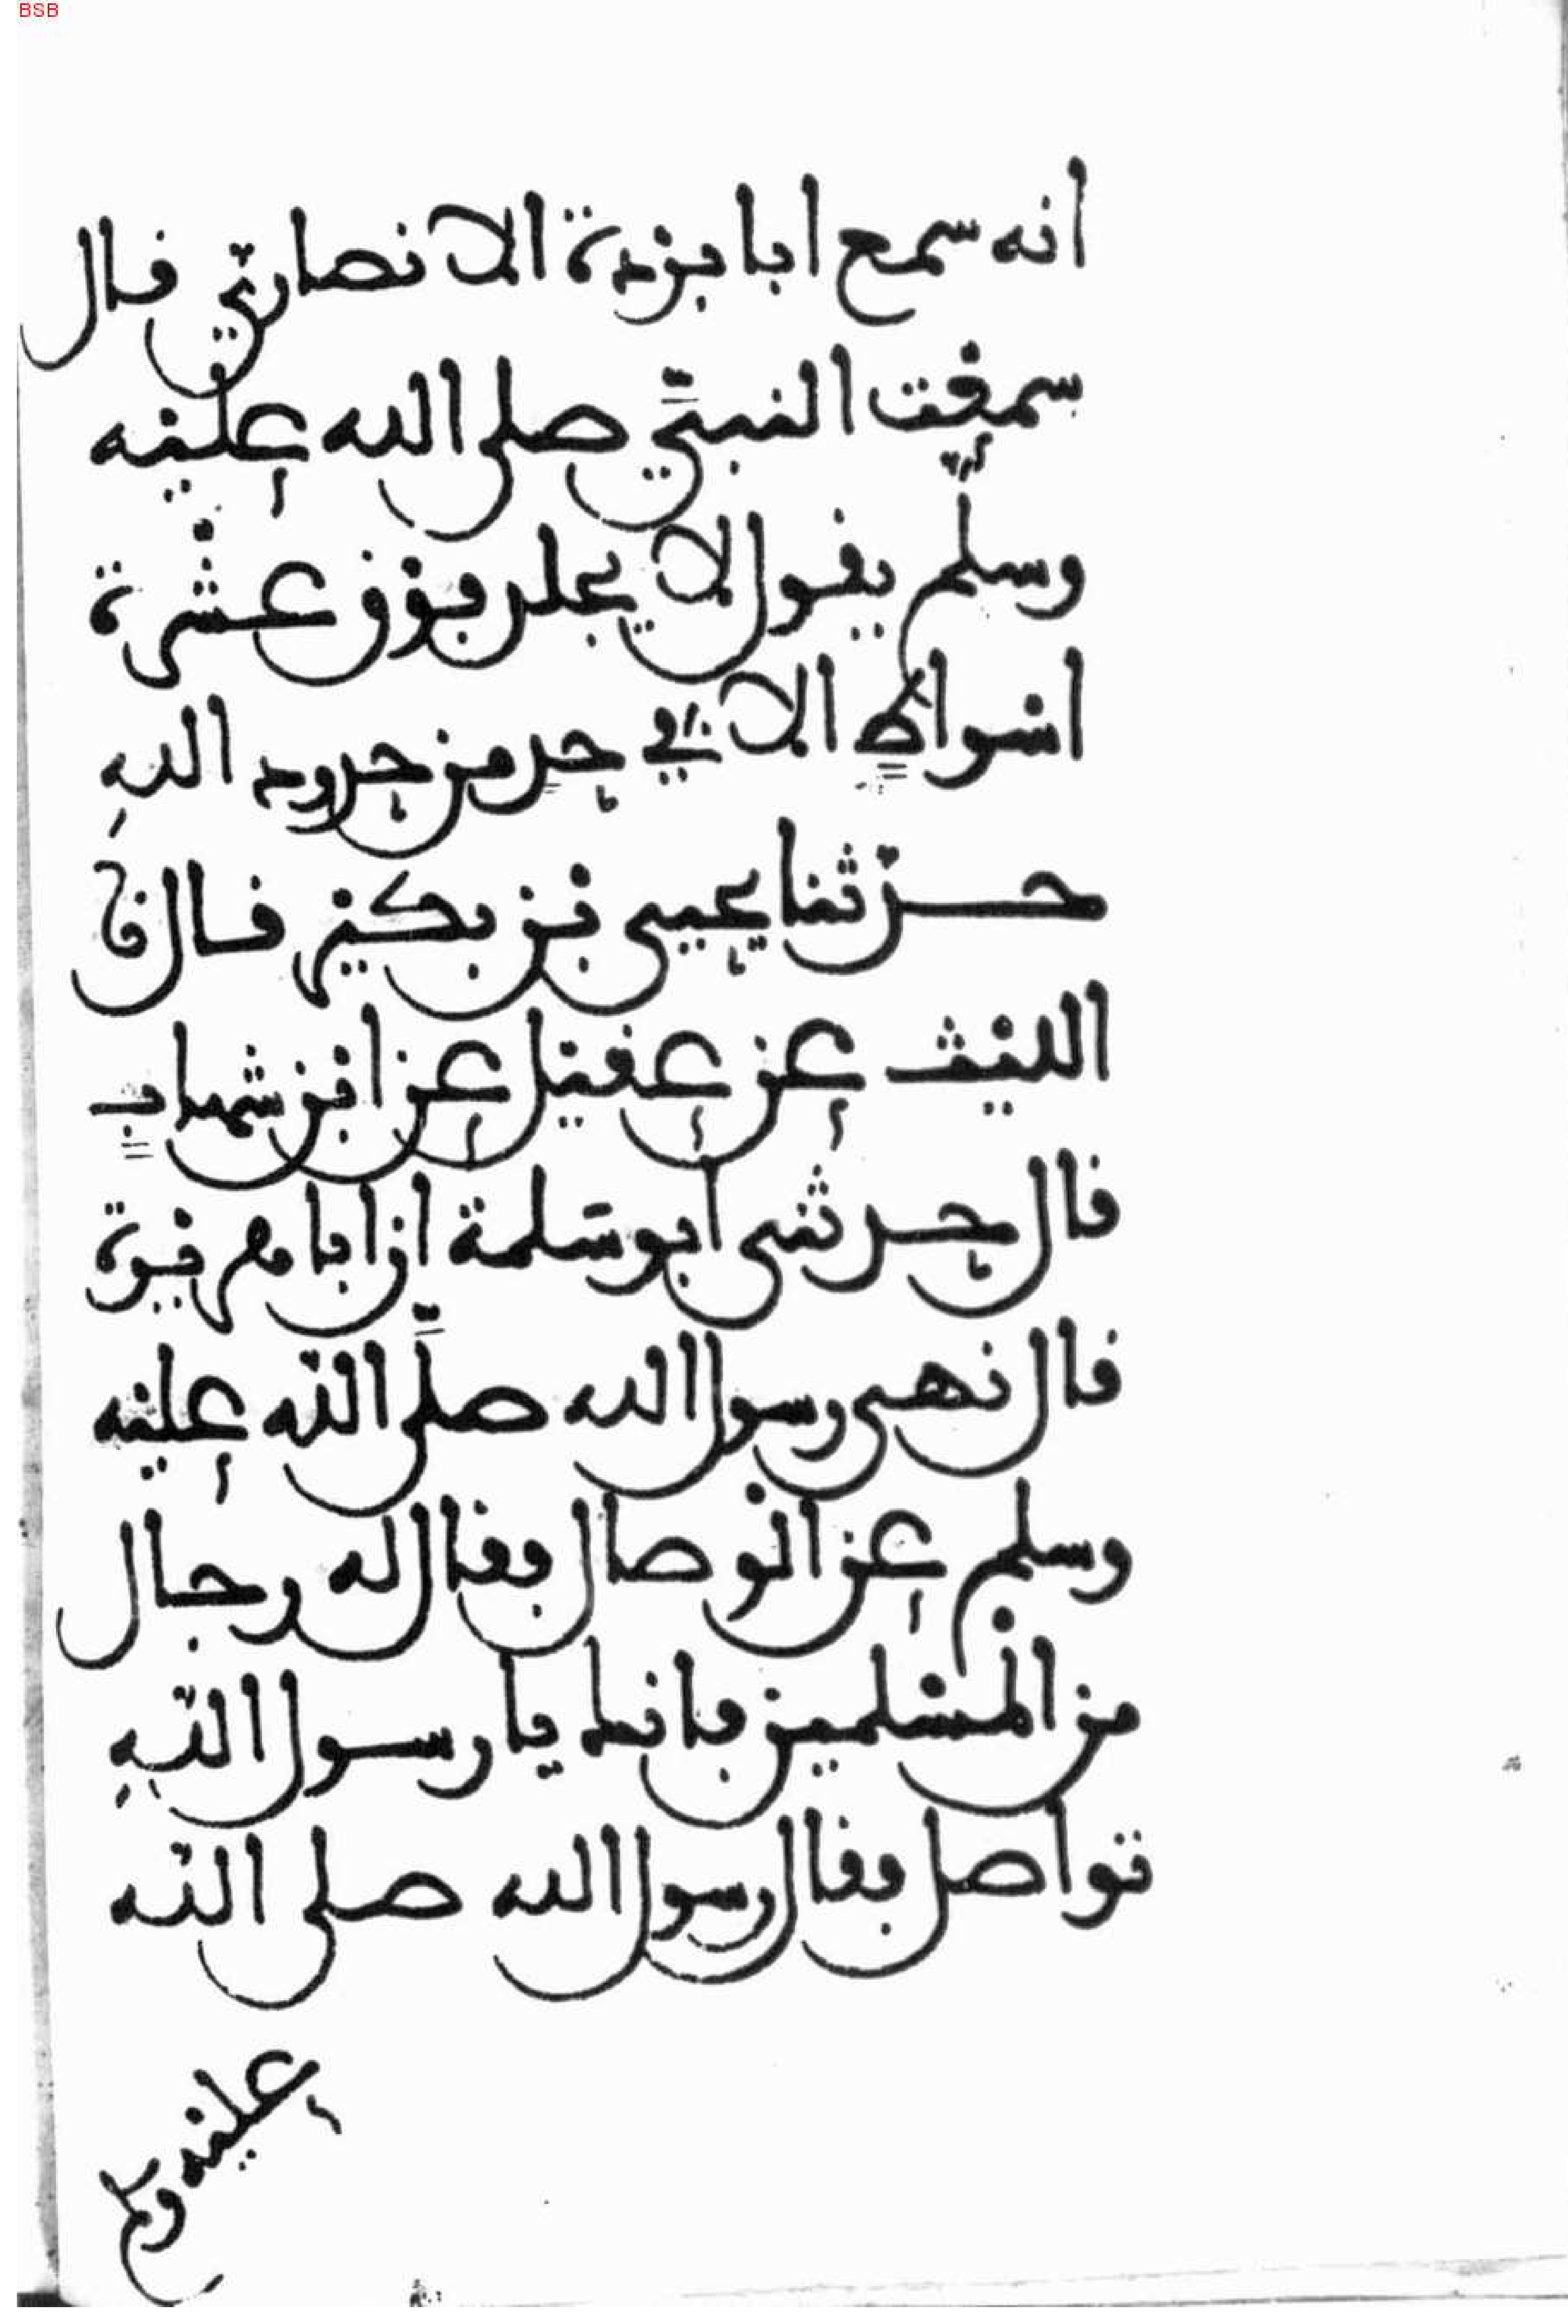 BSB
انه سمع ابا بردة الانصاريّ قال
سمعت النبيّ صلى الله عليه
وسلم يقول لا يجلد فوق عشرة
اسواطٍ الا في حدٍ من حدود اللهِ
حدّثنا يحيى بن بكير قال نا
الليث عن عقيل عن ابن شهابٍ
قال حدثنى ابو سلمة ان ابا هريرة
قال نهى رسول الله صلَّى اللّه عليه
وسلم عن الوصال فقال له رجال
من المسلمين فانك يا رسول اللّهِ
تواصل فقال رسول الله صلى اللّه
عليه وسلم